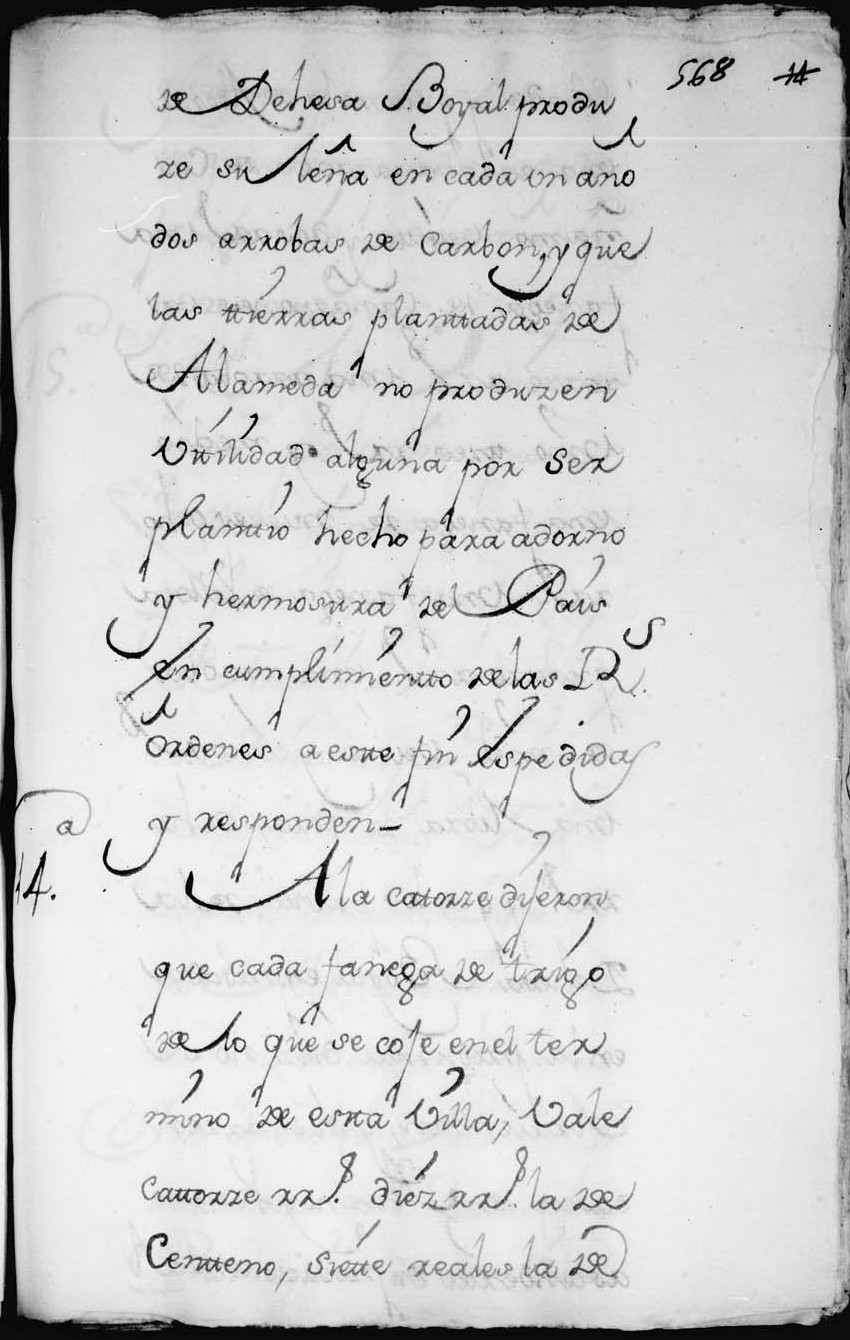 568 14
de Dehesa Boyal produ
ze su leña en cada un año
dos arrobas de Carbon, y que
las ttierras planttadas de
Alameda no produzen
Vttilidad alguna por ser
planttio hecho para adorno
y hermosura del Pais
en cumplimientto de las Rs
Ordenes a estte fin espedidas
y responden_
14.a
A la catorze dijeron
que cada fanega de trigo
de lo que se coje en el ter
mino de estta Villa, Vale
Cattorze rrs. diez rrs. la de
Centteno, siette reales la de